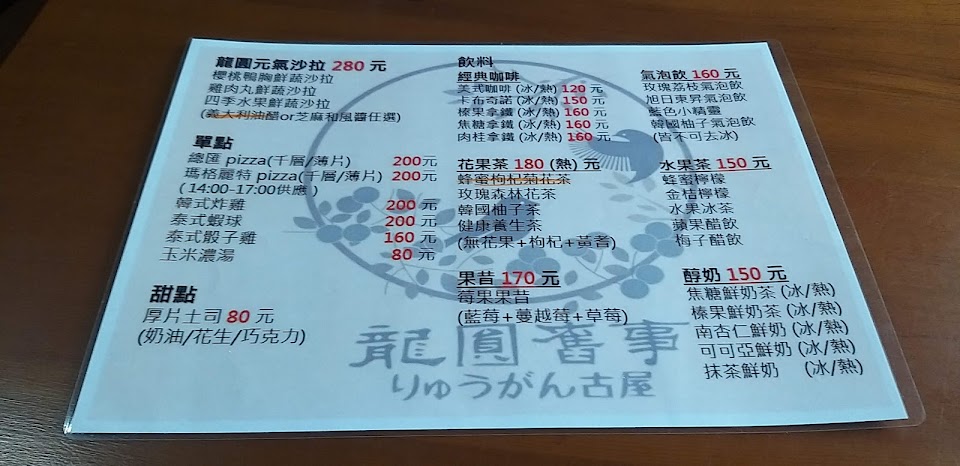 龍圓元氣沙拉 280 元
櫻桃鴨胸鮮蔬沙拉
雞肉丸鮮蔬沙拉
四季水果鮮蔬沙拉
(義大利油醋or芝麻和風醬任選)
單點
總匯 pizza(千層/薄片) 200元
瑪格麗特 pizza(千層/薄片) 200元
(14:00-17:00供應)
韓式炸雞 200 元
泰式蝦球 200 元
泰式骰子雞 160 元
玉米濃湯 80 元
甜點
厚片土司 80 元
(奶油/花生/巧克力)
飲料
經典咖啡
美式咖啡 (冰/熱) 120 元
卡布奇諾 (冰/熱) 150 元
榛果拿鐵 (冰/熱) 160 元
焦糖拿鐵 (冰/熱) 160 元
肉桂拿鐵 (冰/熱) 160 元
花果茶 180 (熱) 元
蜂蜜枸杞菊花茶
玫瑰森林花茶
韓國柚子茶
健康養生茶
(無花果+枸杞+黃耆)
果昔 170 元
莓果果昔
(藍莓+蔓越莓+草莓)
氣泡飲 160 元
玫瑰荔枝氣泡飲
旭日東昇氣泡飲
藍色小精靈
韓國柚子氣泡飲
(皆不可去冰)
水果茶 150 元
蜂蜜檸檬
金桔檸檬
水果冰茶
蘋果醋飲
梅子醋飲
醇奶 150 元
焦糖鮮奶茶 (冰/熱)
榛果鮮奶茶 (冰/熱)
南杏仁鮮奶 (冰/熱)
可可亞鮮奶 (冰/熱)
抹茶鮮奶 (冰/熱)
龍圓舊事
りゅうがん古屋